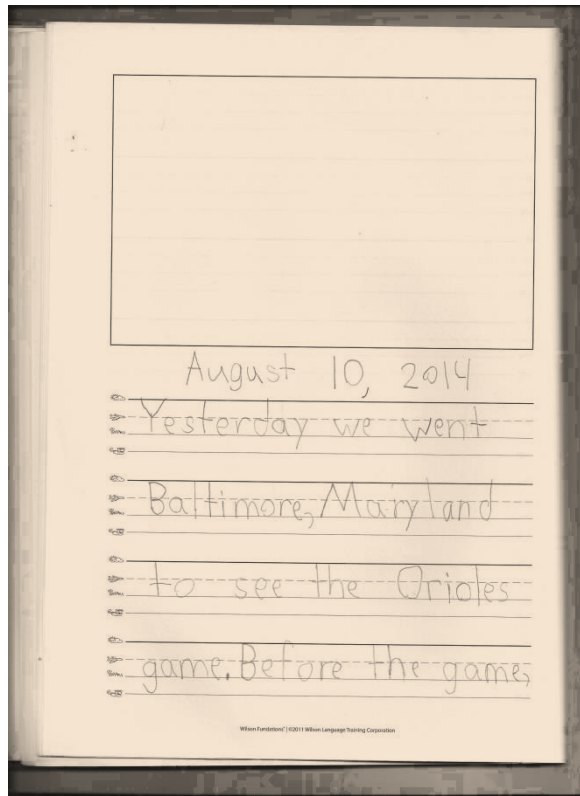 August 10, 2014
Yesterday we went
Baltimore, Maryland
to see the Orioles
game. Before the game,
Wilson Fundations® | ©2011 Wilson Language Training Corporation